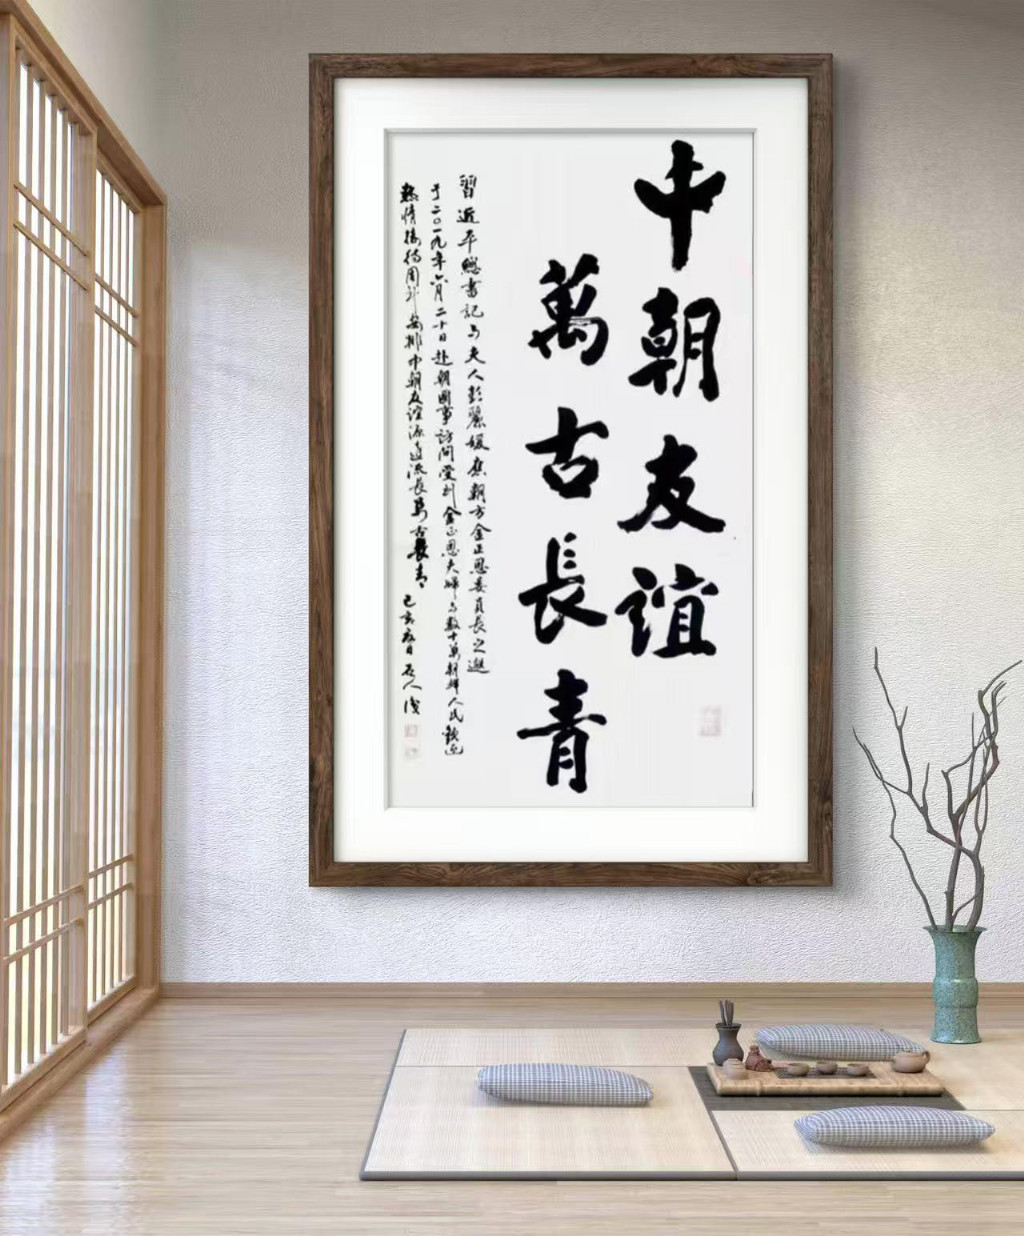 中朝友誼
萬古長青
習近平總書記与夫人彭麗媛應朝方金正恩委員長之邀
于二〇一九年六月二十日赴朝國事訪問受到金正恩夫婦与數十萬朝鮮人民歡迎
熱情接待周到安排中朝友誼源遠流長萬古長青 己亥